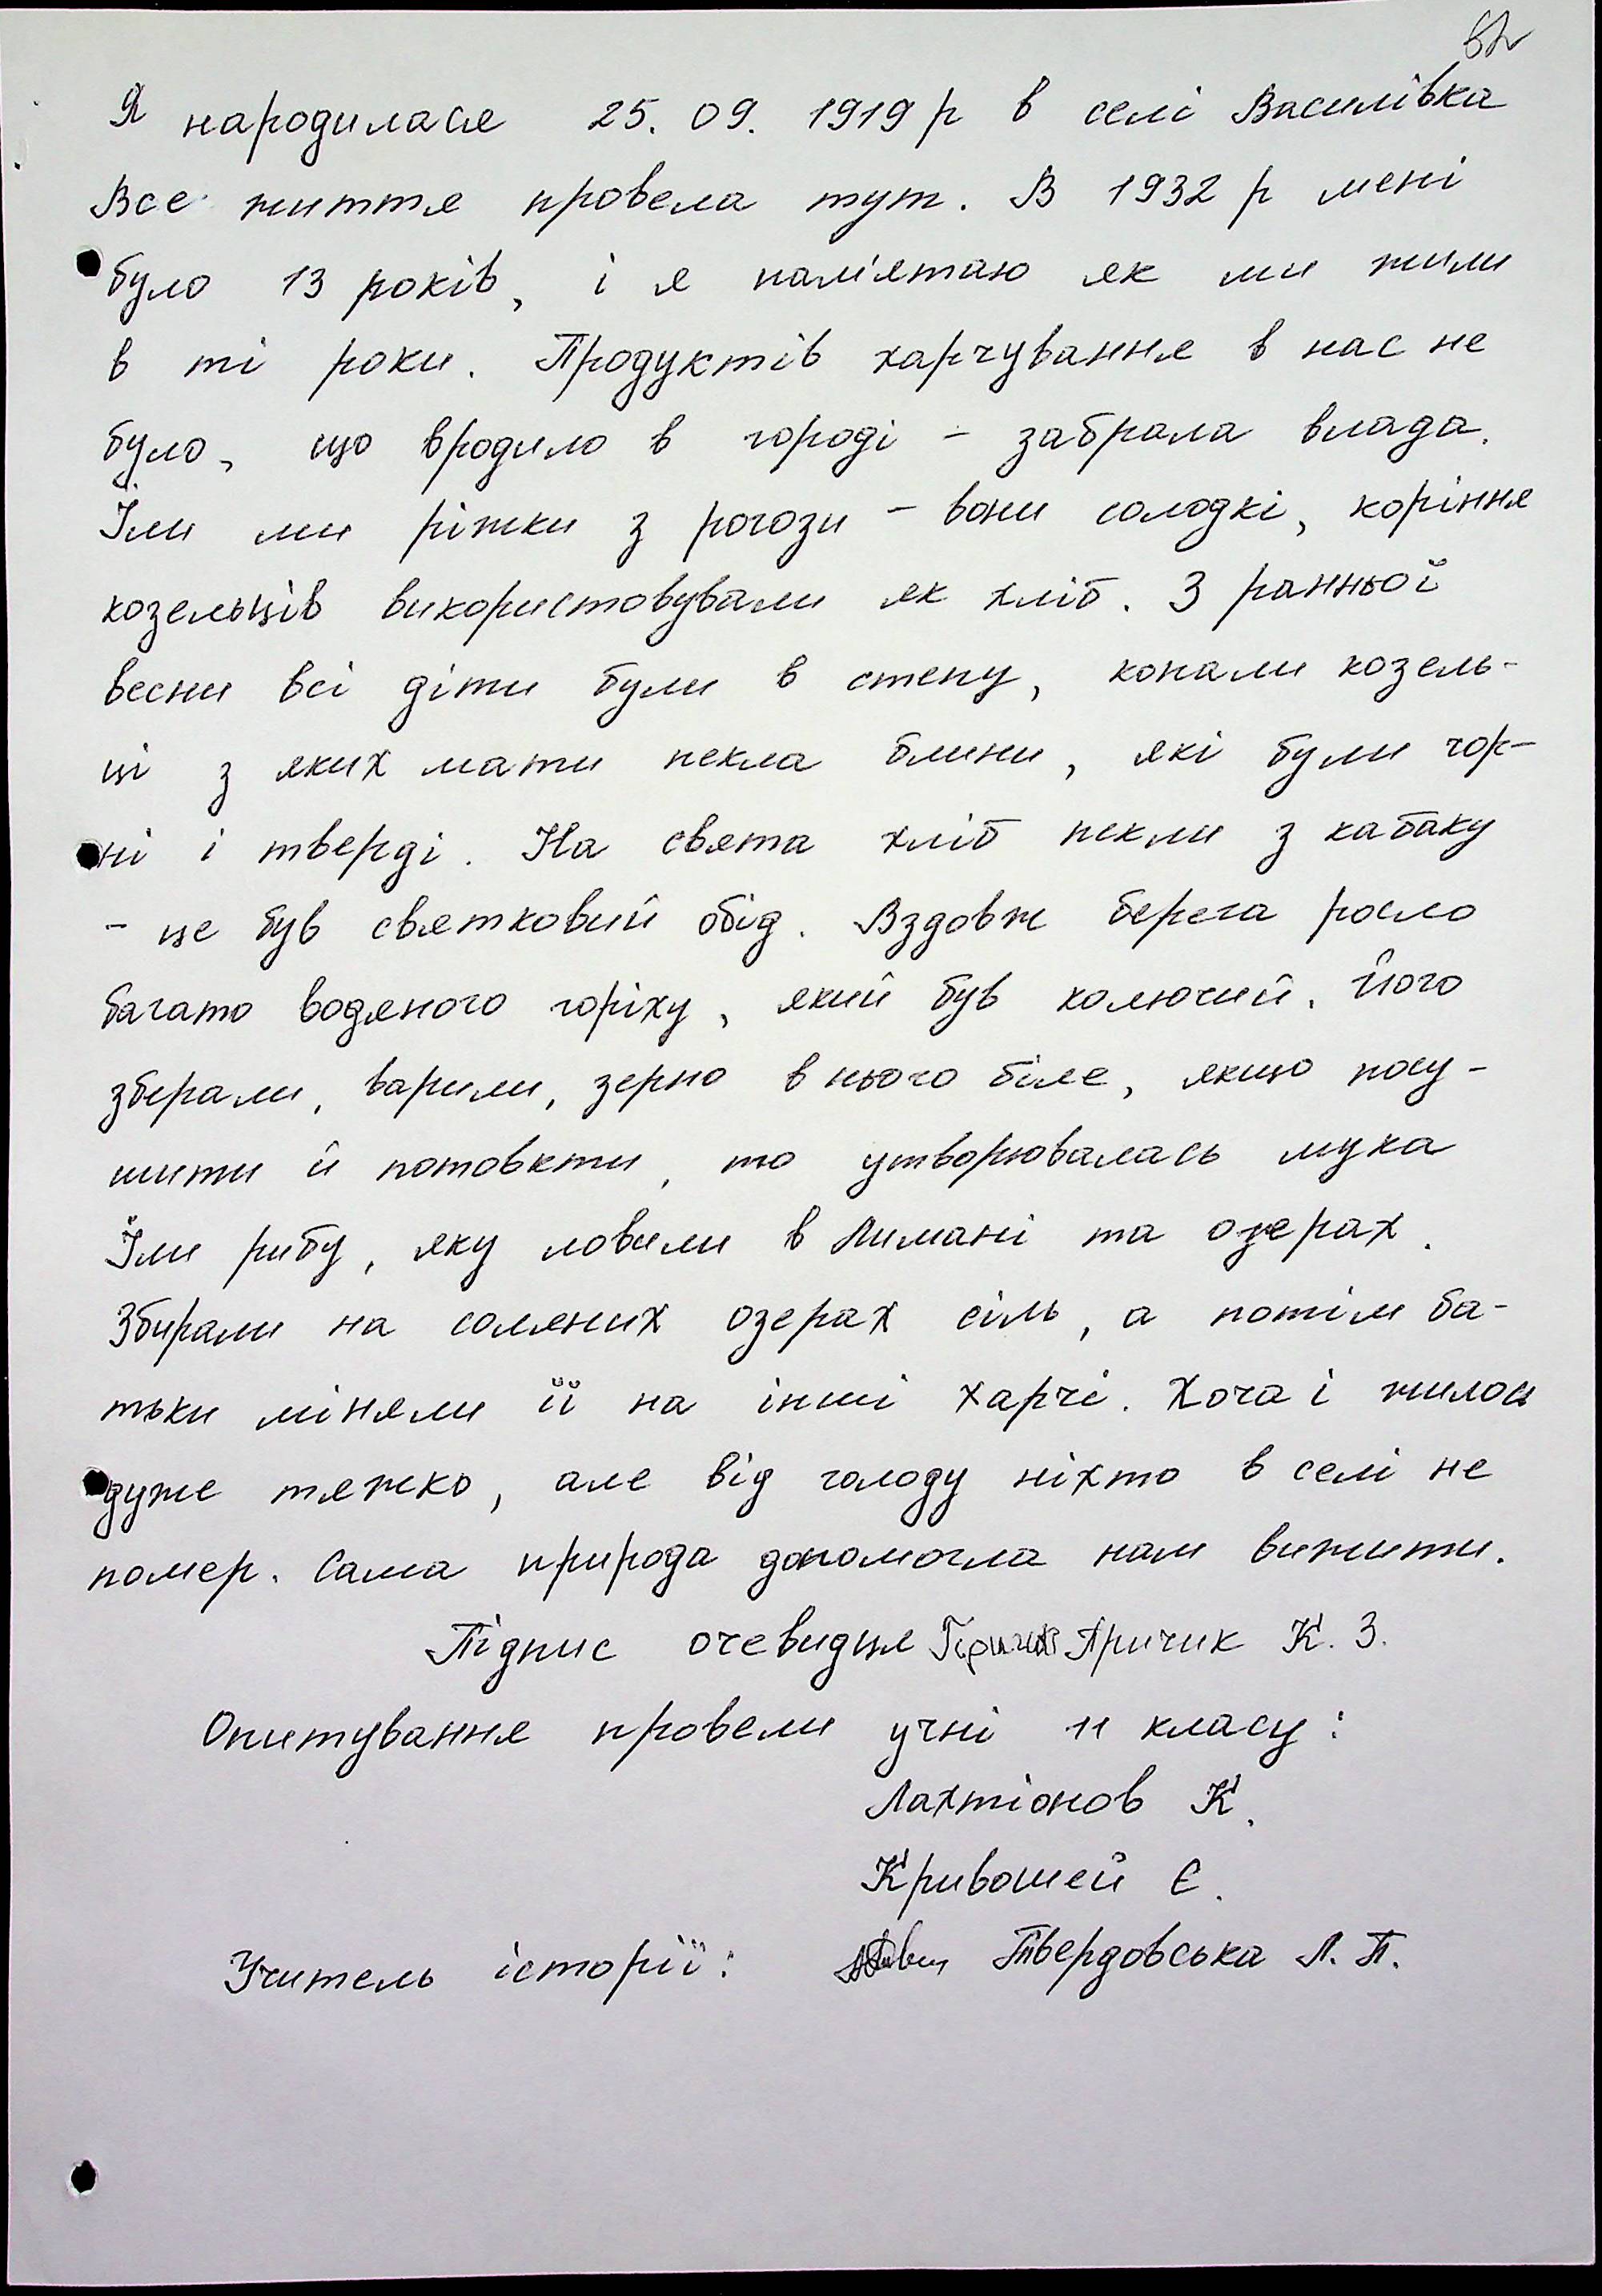 Я народилася 25. 09. 1919 р в селі Василівка
Все життя провела тут. В 1932 р мені
було 13 років, і я пам'ятаю як ми жили
в ті роки. Продуктів харчування в нас не
було, що вродило в городі - забрала влада.
Їли ми ріжки з рогози - вони солодкі, коріння
козельців використовували як хліб. З ранньої
весни всі діти були в степу, копали козель-
ці з яких мати пекла блини, які були чор-
ні і тверді. На свята хліб пекли з кабаку
- це був святковий обід. Вздовж берега росло
багато водяного горіху, який був колючий. Його
зберали, варили, зерно в нього біле, якщо посу-
шити й потовкти, то утворювалась мука
Їли рибу, яку ловили в Лимані та озерах.
Збирали на соляних озерах сіль, а потім ба-
тьки міняли її на інші харчі. Хоча і жилось
дуже тяжко, але від голоду ніхто в селі не
помер. Сама природа допомогла нам вижити.
Підпис очевидця Причик К. З.
Опитування провели учні 11 класу:
Лахтіонов К.
Кривошей Є.
Учитель історії: Твердовська Л. П.